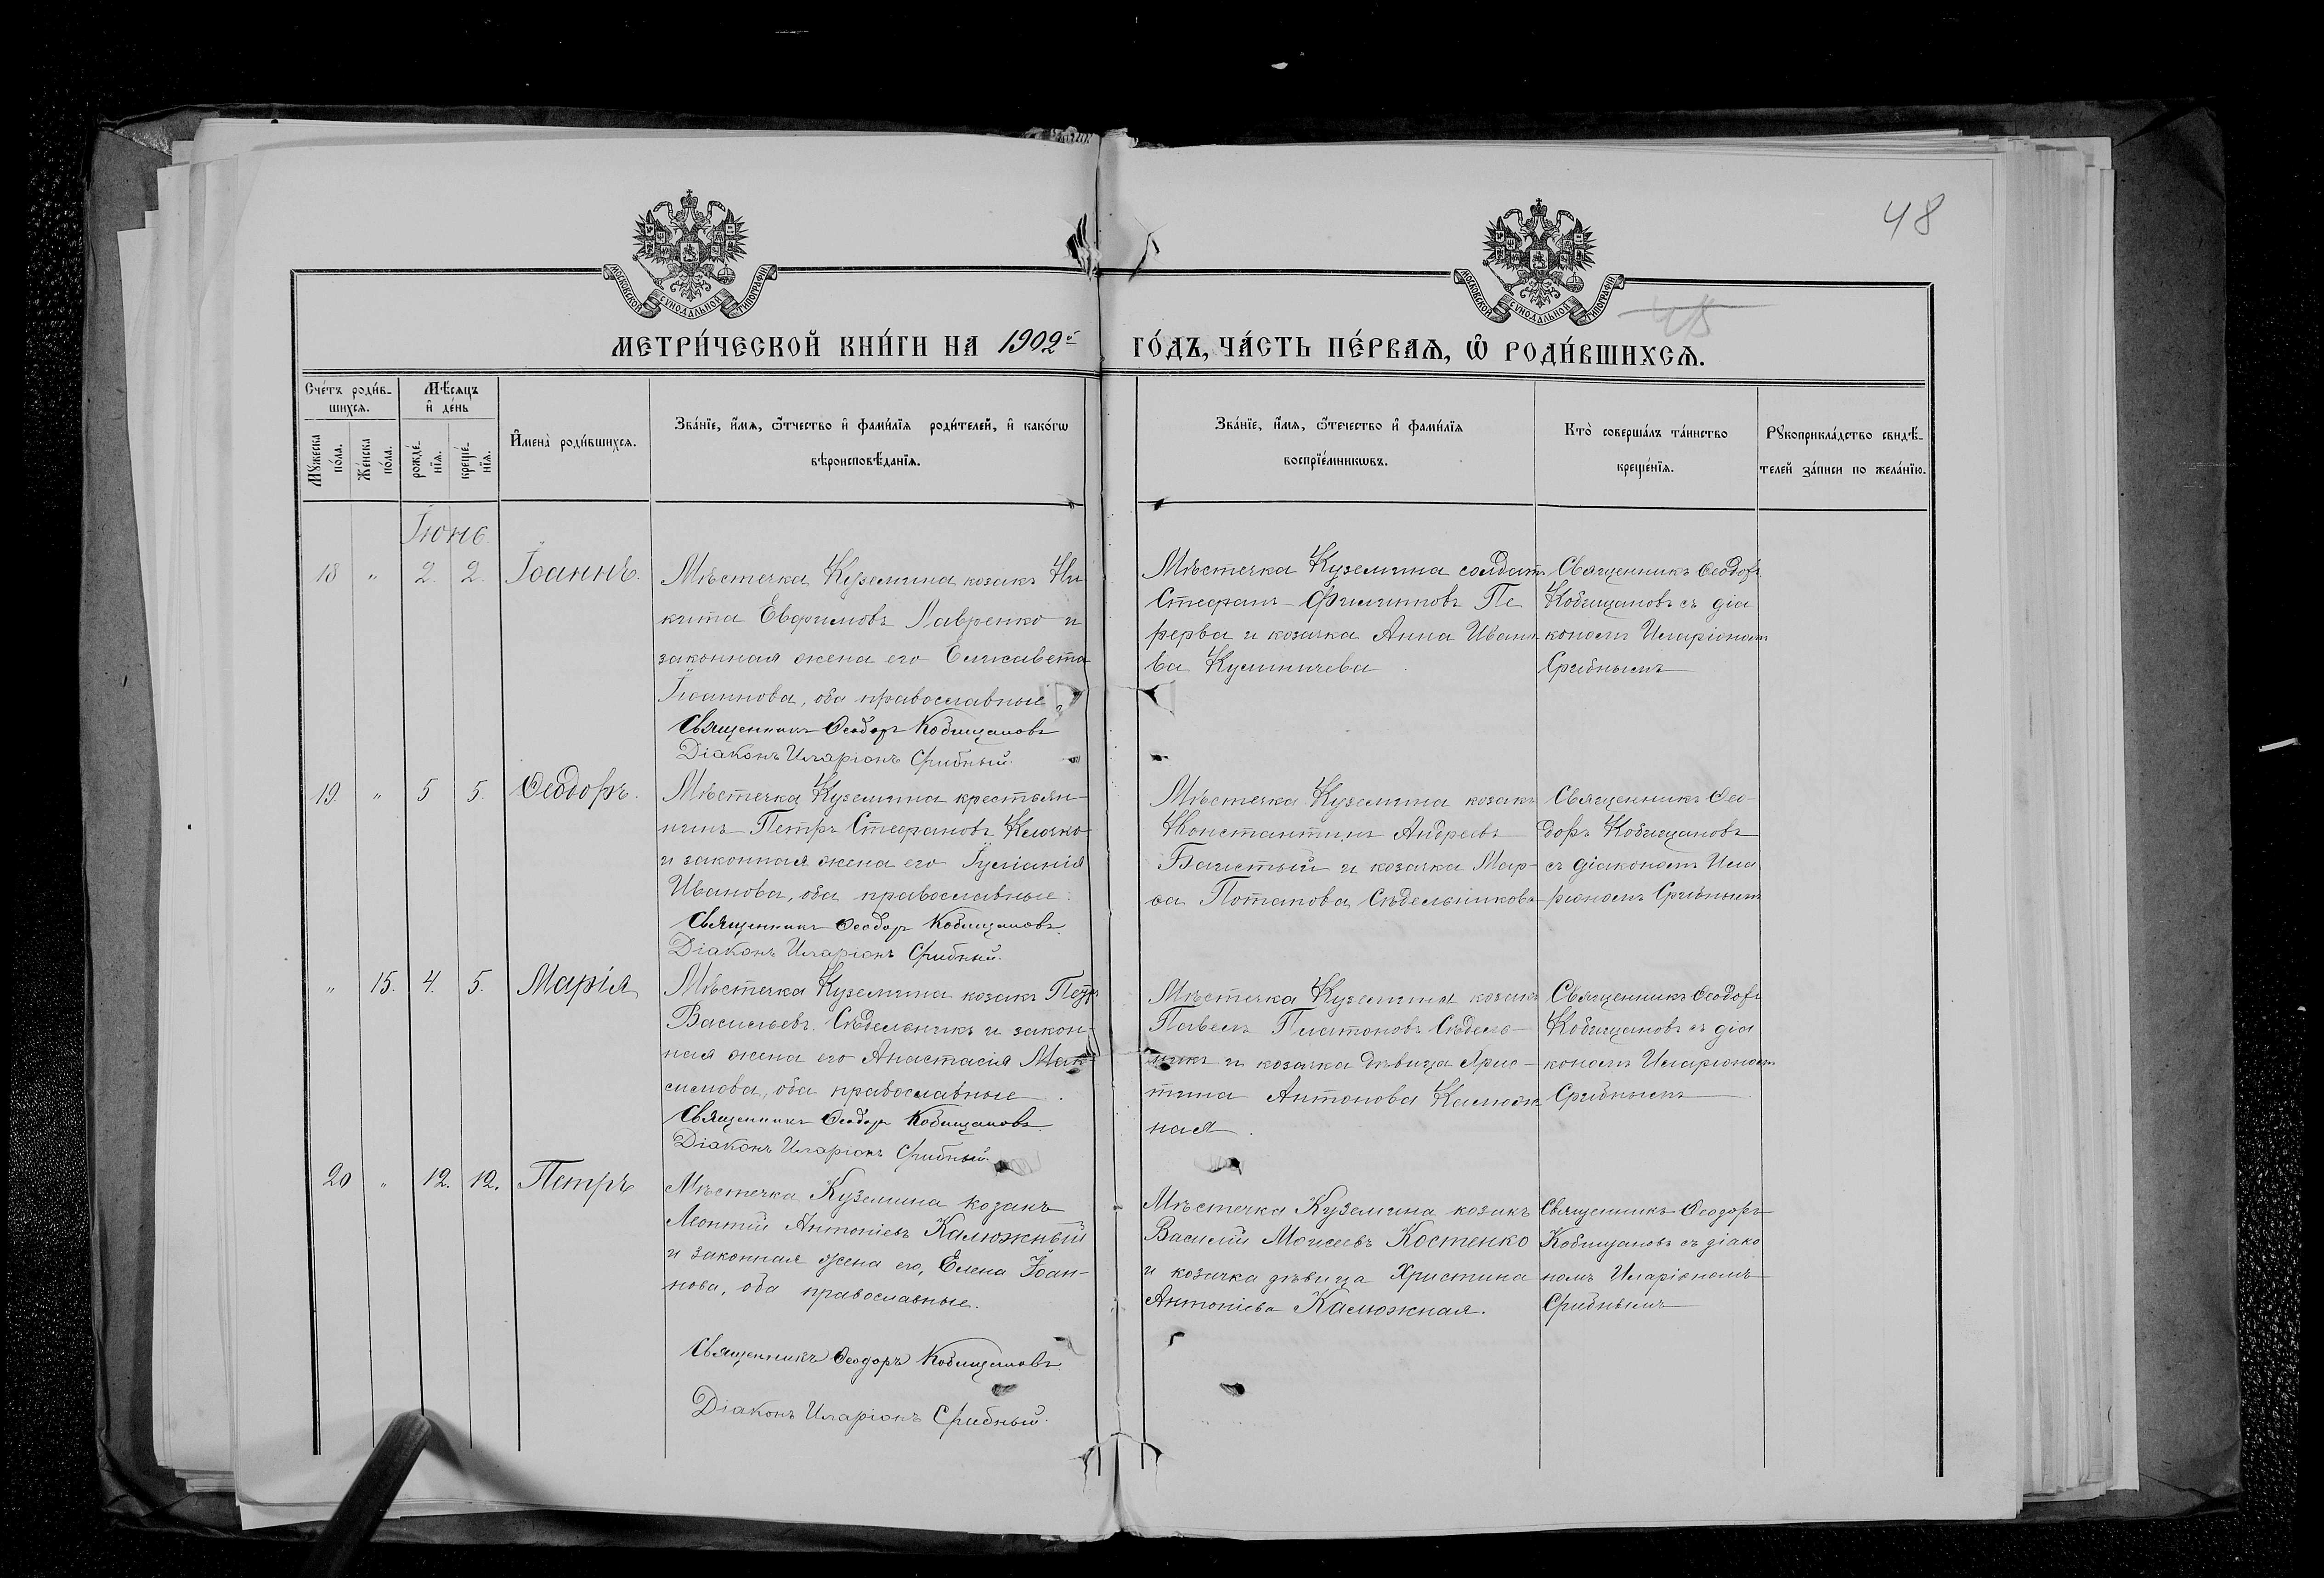 48
МОСКОВСКОЙ СѴНОДАЛЬНОЙ ТИПОГРАФІИ
МОСКОВСКОЙ СѴНОДАЛЬНОЙ ТИПОГРАФІИ
МЕТРИ́ЧЕСКОЙ КНИ́ГИ НА 1902й ГО́ДЪ, ЧА́СТЬ ПЕ́РВАѦ, Ѡ҆ РОДИ́ВШИХСѦ.
Сче́тъ роди́в-
шихсѧ.
Мꙋ́жеска
по́ла.
Же́нска
по́ла.
Мѣ́сѧцъ
и҆ де́нь
рожде́-
нїѧ.
креще́-
нїѧ.
И҆мена̀ роди́вшихсѧ.
Зва́нїе, и҆́мѧ, ѻ҆́тчество и҆ фами́лїѧ роди́телей, и҆ како́гѡ
вѣроисповѣ́данїѧ.
Зва́нїе, и҆́мѧ, ѻ҆́течество и҆ фами́лїѧ
воспрїе́мникѡвъ.
Кто̀ соверша́лъ та́инство
креще́нїѧ.
Рꙋкоприкла́дство свидѣ́-
телей за́писи по жела́нїю.
Іюнь
18 „ 2. 2. Іоаннъ.
Мѣстечка Куземина козакъ Ни
кита Евфимовъ Лавренко и
законная жена его Елисавета
Іоаннова, оба православные
Священникъ Ѳеодоръ Кобищановъ
Діаконъ Иларіонъ Срибный.
Мѣстечка Куземина солдатъ
Стефанъ Филипповъ Пе
рерва и козачка Анна Ивано
ва Кулиничева
Священникъ Ѳеодоръ
Кобищановъ съ діа
кономъ Иларіономъ
Срибнымъ
19. „ 5 5. Ѳеодоръ.
Мѣстечка Куземина крестьян-
нинъ Петръ Стефановъ Клочко
и законная жена его Іуліанія
Иванова, оба православные.
Священникъ Ѳеодоръ Кобищановъ
Діаконъ Иларіонъ Срибный.
Мѣстечка Куземина козакъ
Константинъ Андреевъ
и козачка Мар-
ѳа Потапова Сѣдельникова
Священникъ Ѳео-
доръ Кобищановъ
съ діакономъ Ила
ріономъ Срибнымъ
„ 15. 4. 5. Марія
Мѣстечка Куземина козакъ Петръ
Васильевъ Сѣдельникъ и закон-
ная жена его Анастасія Мак-
симова, оба православные
Священникъ Ѳеодоръ Кобищановъ
Діаконъ Иларіонъ Срибный
Мѣстечка Куземина козакъ
Павелъ Платоновъ Сѣдель-
никъ и козачка дѣвица Хрис-
тина Антонова Калюж
ная.
Священникъ Ѳеодоръ
Кобищановъ съ діа
кономъ Иларіономъ
Срибнымъ
20 „ 12. 12. Петръ
Мѣстечка Куземина козакъ
Леонтій Антоніевъ Калюжный
и законная жена его, Елена Іоан-
нова, оба православные.
Священникъ Ѳеодоръ Кобищановъ
Діаконъ Иларіонъ Срибный.
Мѣстечка Куземина козакъ
Василій Моисеевъ Костенко
и козачка дѣвица Христина
Антоніева Калюжная.
Священникъ Ѳеодоръ
Кобищановъ съ діако
номъ Иларіономъ
Срибнымъ